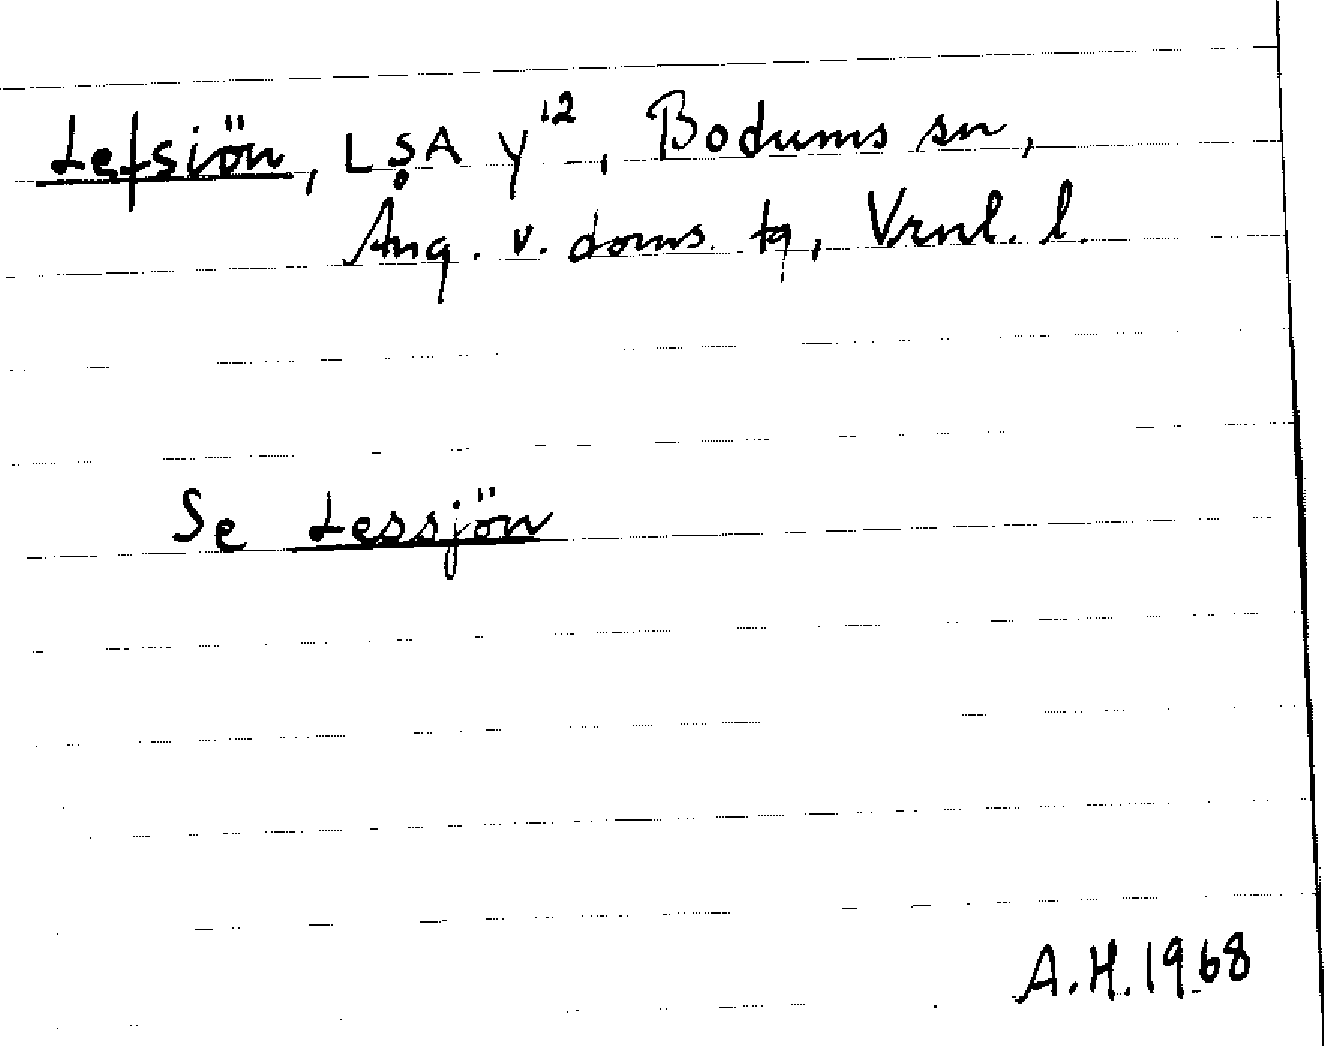 Lefsiön, LSA Y¹², Bodums sn,
Ång. v. doms. tg, Vrnl. l.
Se Lessjön
A.H. 1968